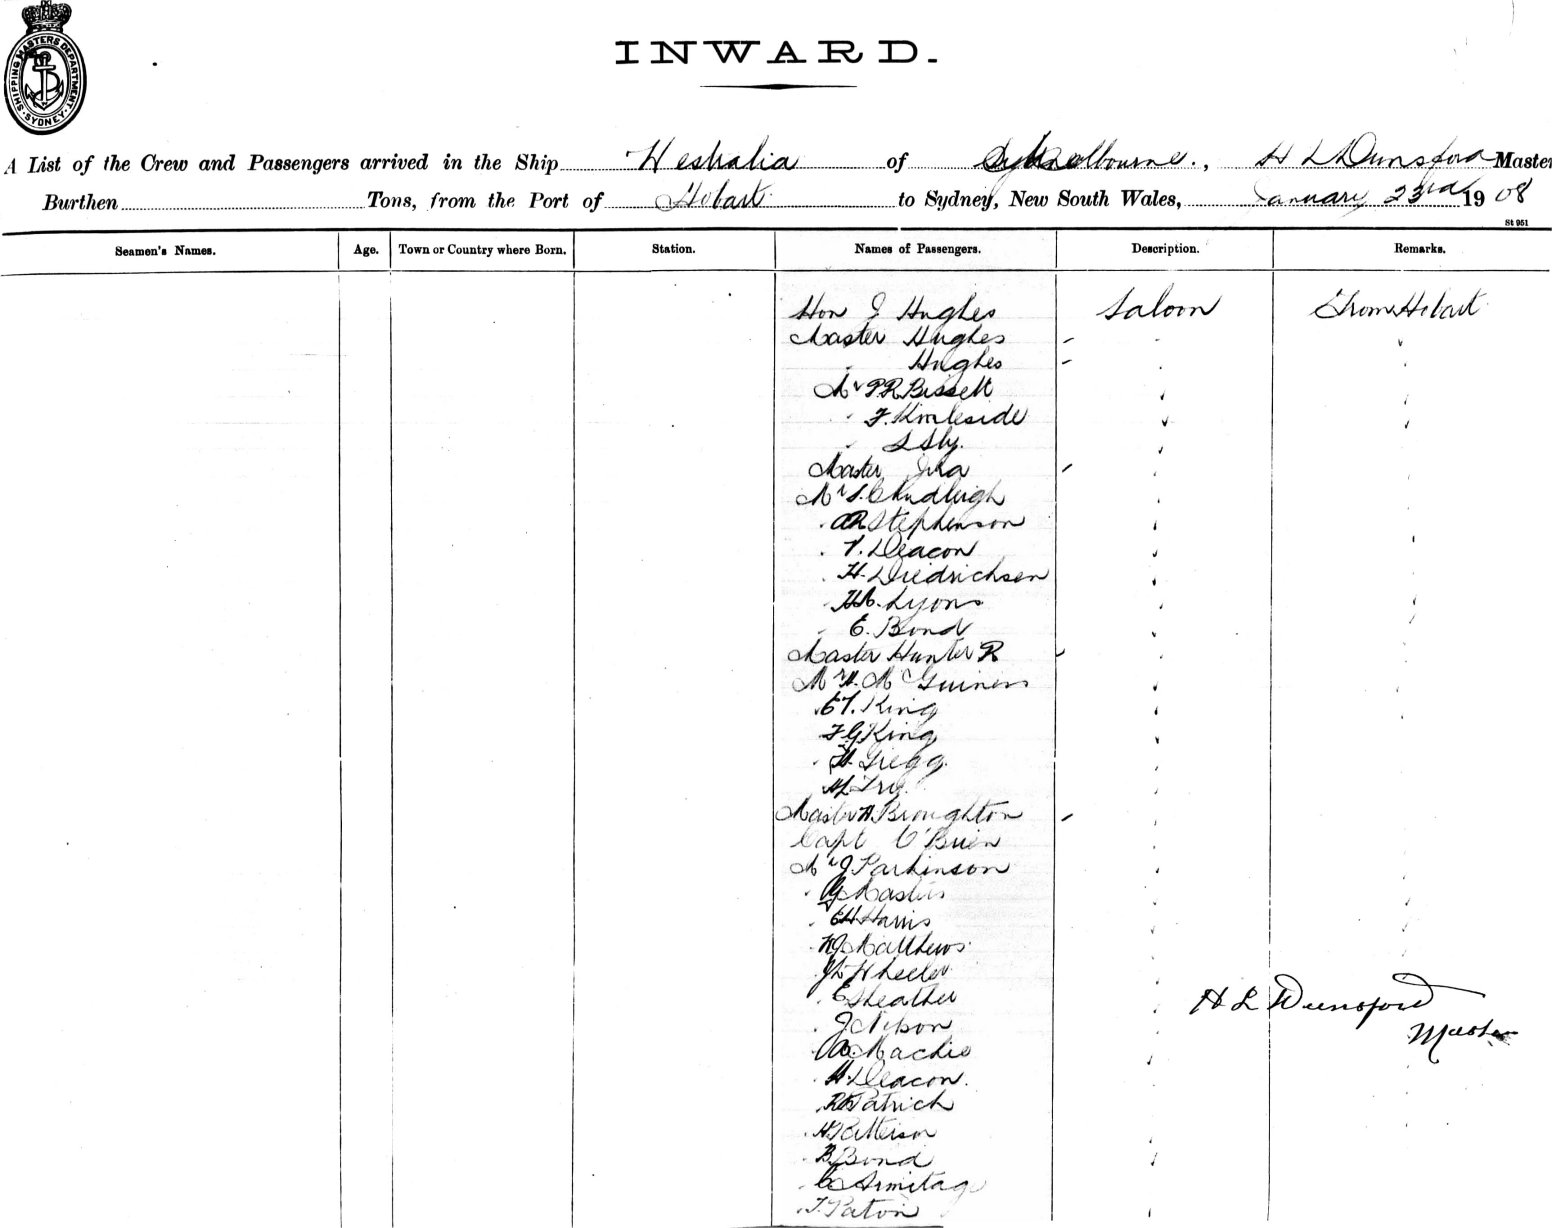 SHIPPING MASTERS DEPARTMENT
SYDNEY
INWARD.
A List of the Crew and Passengers arrived in the Ship Westralia of Melbourne., H L Dunsford Master
Burthen Tons, from the Port of Hobart to Sydney, New South Wales, January 23rd 1908
St 951
Seamen's Names. Age. Town or Country where Born. Station. Names of Passengers. Description. Remarks.
Hon J Hughes Saloon From Hobart
Master Hughes
Hughes
Mr P.R Bissett
F. Kimleside
S Sly.
Master
Mr S. Chudleigh
AR Stephenson
V. Deacon
H. Diedrichsen
Lyons
E. Bond
Master Hunter R
Mr H. McGuiness
E T. King
F G King
H. Gregg
Try.
Master H. Broughton
Capt O'Brien
Mr J Parkinson
Masters
E H Harris
W J Matthews
J L Wheeler
E Sheather
H L Dunsford
J Nelson
Master
A. Mackie
H. Deacon.
Patrick
H. Patterson
B. Bond
C Armitage
T. Paton